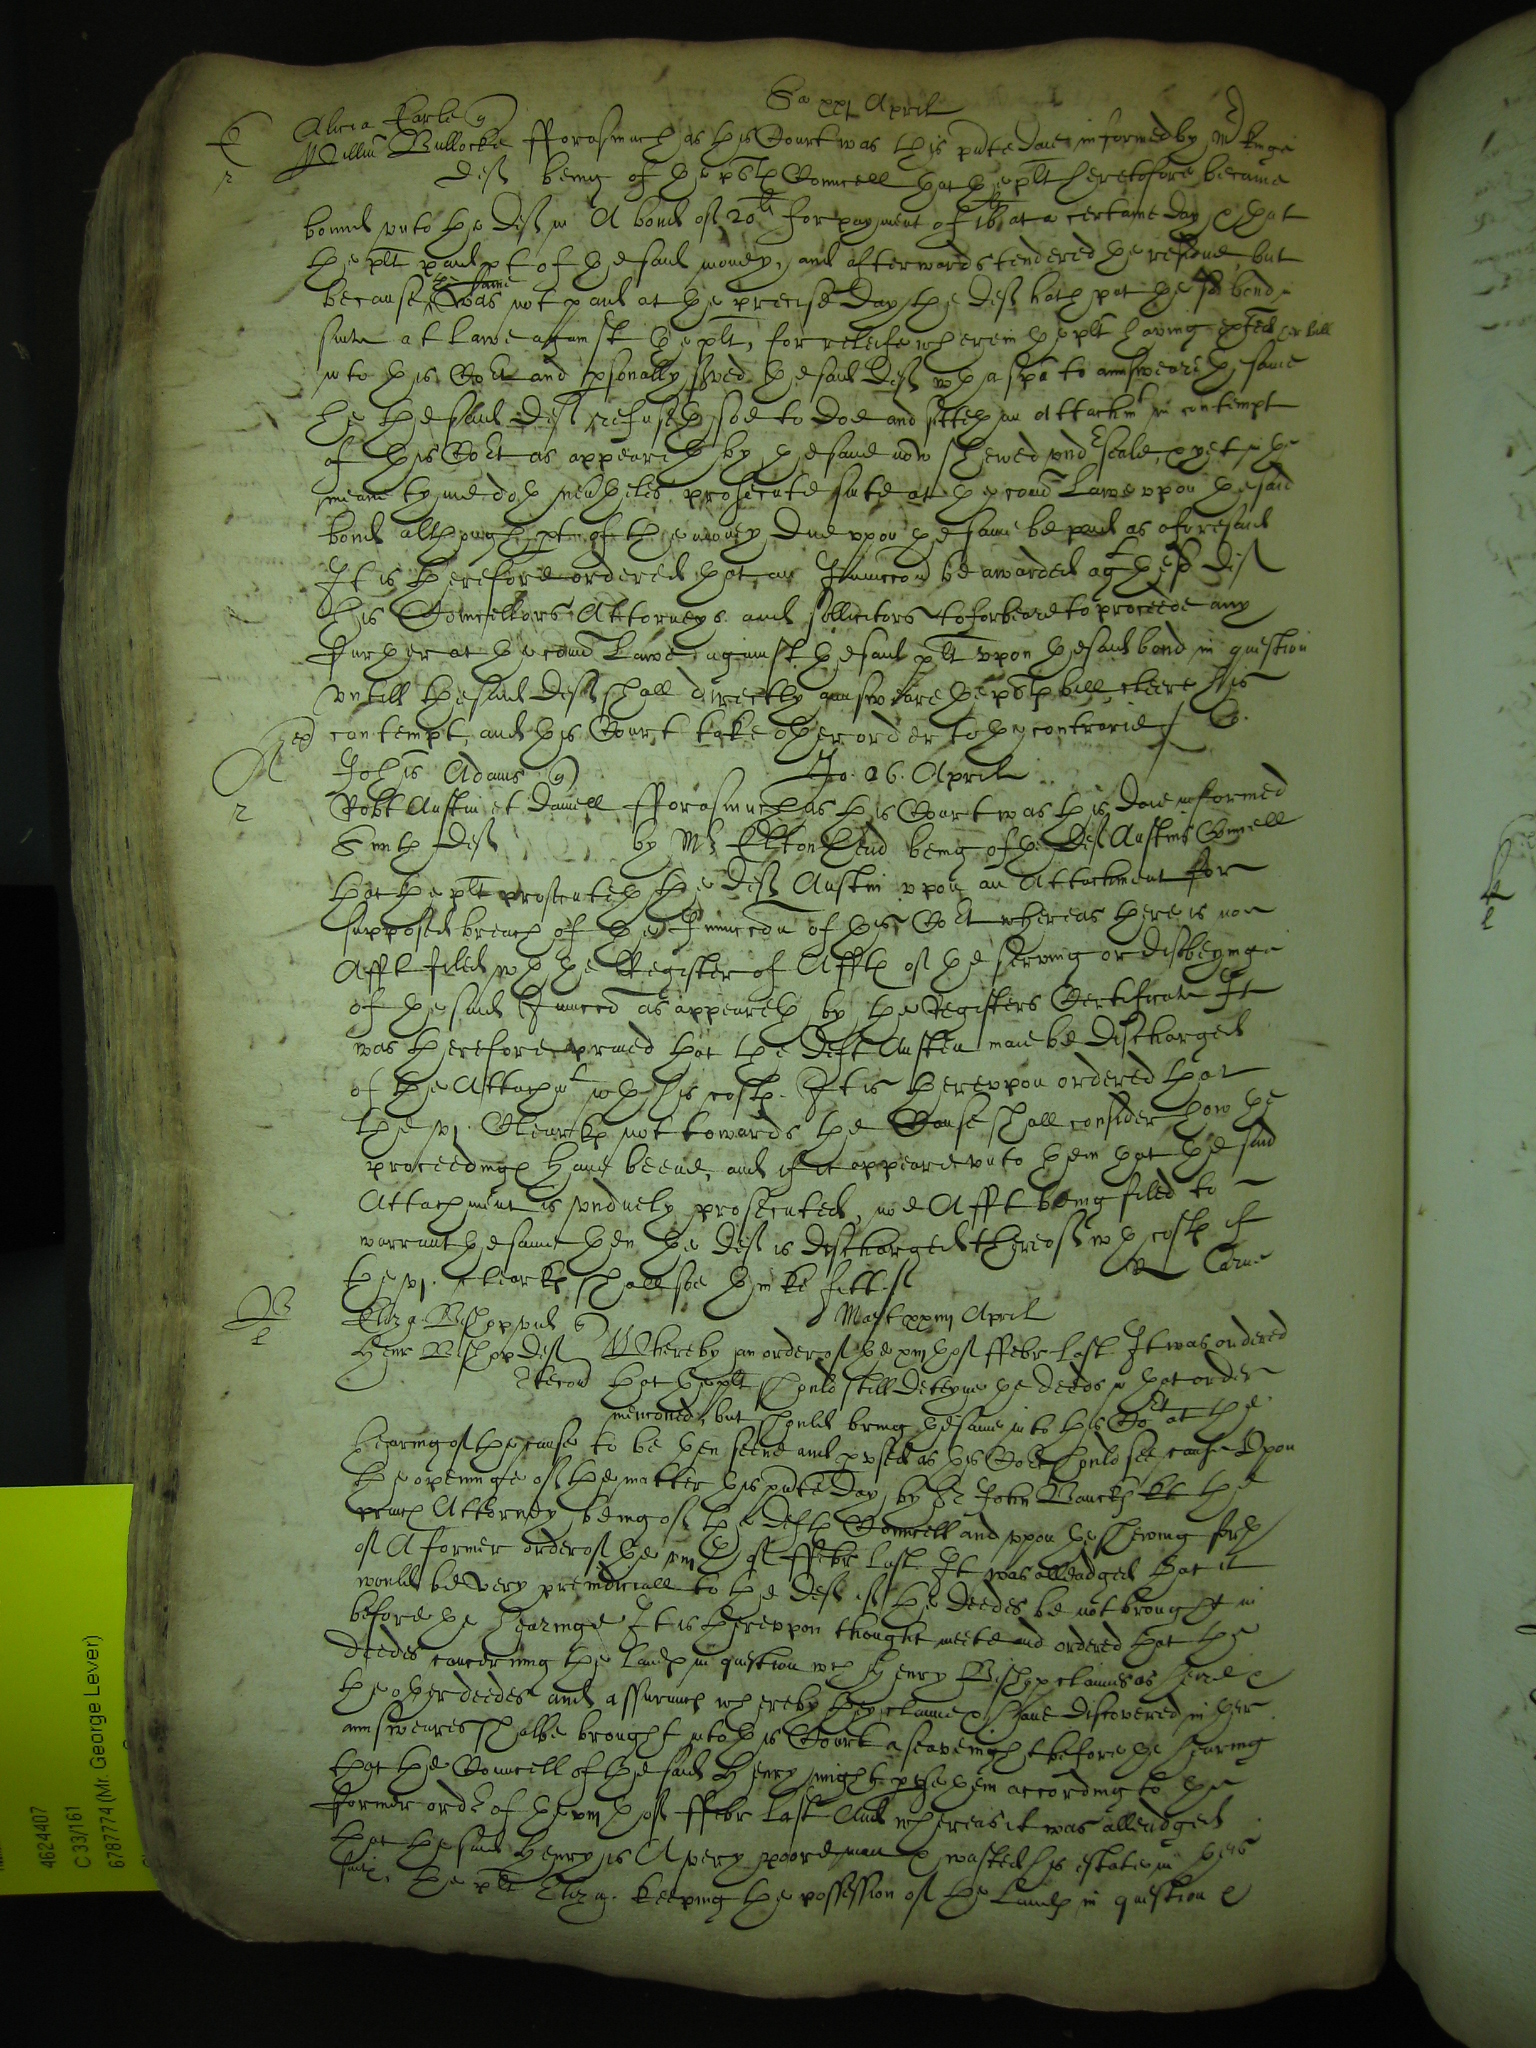 Sa xxi Aprill
Alicia Earle qr
Willm Bullocke fforasmuch as this Court was this pnte daie informed by Mr Kinge
deft being of the pltes Councell that the plt heretofore became
bound unto the deft in A bond of 20li for payment of at a certaine day & that
the plt paid pt of the said money, and afterwards tendered the residue but
because the same was not paid at the precise day the deft hath put the sd bond in
suite at Lawe against the plt, for releife wherein the plt having exhited her bill
into this Cort and psonally served the said deft wth a spa to aunsweare the same
he the said deft refuseth soe to doe and sitteth an Attachmt in contempt
of this Cort as appeareth by the same now shewed undr seale, & yet in the
meane tyme doth nevtheles prosecute suite at the comon Lawe upon the said
bond although pt of the money due upon the same be paid as aforesaid
It is therefore ordered that an Iniunccon be awarded agt the sd deft
his Councellors Attorneys and sollicitors to forbeare to proceede any
further at the comon Lawe against the said plt upon the said bond in question
untill the said deft shall directly aunsweare the pltes bill cleere his
contempt, and this Court take other order to the contrarie
Johis Adams qr Jo. 26. Aprill
Robt Austin et Daniell fforasmuch as this Court was this daie informed
Smith deft by Mr Eltonhead being of the deft Austins Councell
that the plt prosecuteth the deft Austin upon an Attachment for
supposed breach of the Iniunccon of this Cort whereas there is non
Afft filed wth the Register of Affts of the serving or disobeyinge
of the said Iniunccon as appeareth by the Registers Certificate It
was therefore praied that the deft Austen maie be discharged
of the Attachmt wth his costs. It is thereupon ordered that
the vj. Clearks not towards the Cause shall consider how the
proceedings have beene, and if it appeare unto them that the said
Attachment is unduely prosecuted, noe Afft being filed to
warrant the same then the deft is discharged thereof wth costs if
the vj. clearks shall soe thinke fitt
Eliz a. Bishopp vid qr Mart xxiiij Aprill
Henr Bishopp deft Whereby an order of the xiijth of ffebr last It was ordered
that the plt should still deteyne the deeds in that order
mencioned, but should bring the same into this Cort at the
hearing of the cause to be then seene and pused as this Cort should see cause Upon
the openinge of the matter this pnte day by Sr John Banckes kt the
princes Attorney being of the defts Councell and upon the shewing forth
of A former order of the viijth of ffebr last It was alleadged that it
would be very preiudiciall to the deft if the deedes be not brought in
before the hearinge It is thereupon thought meete and ordered that the
deedes concerning the lands in question wch Henry Bishopp claimes as heire &
the other deedes and assurances whereby they claime & have discovered in their
aunsweares shalbe brought into this Court a seavenight before the hearing
that the Councell of the said Henry might pose them according to the
former ordr of the viijth of ffebr last And whereas it was alleadged
that the said Henry is A very poore man & wasted his estate in this
suite, the plt Eliz a. keeping the possession of the lands in question &
4624407
C 33/161
6787774 (Mr. George Lever)